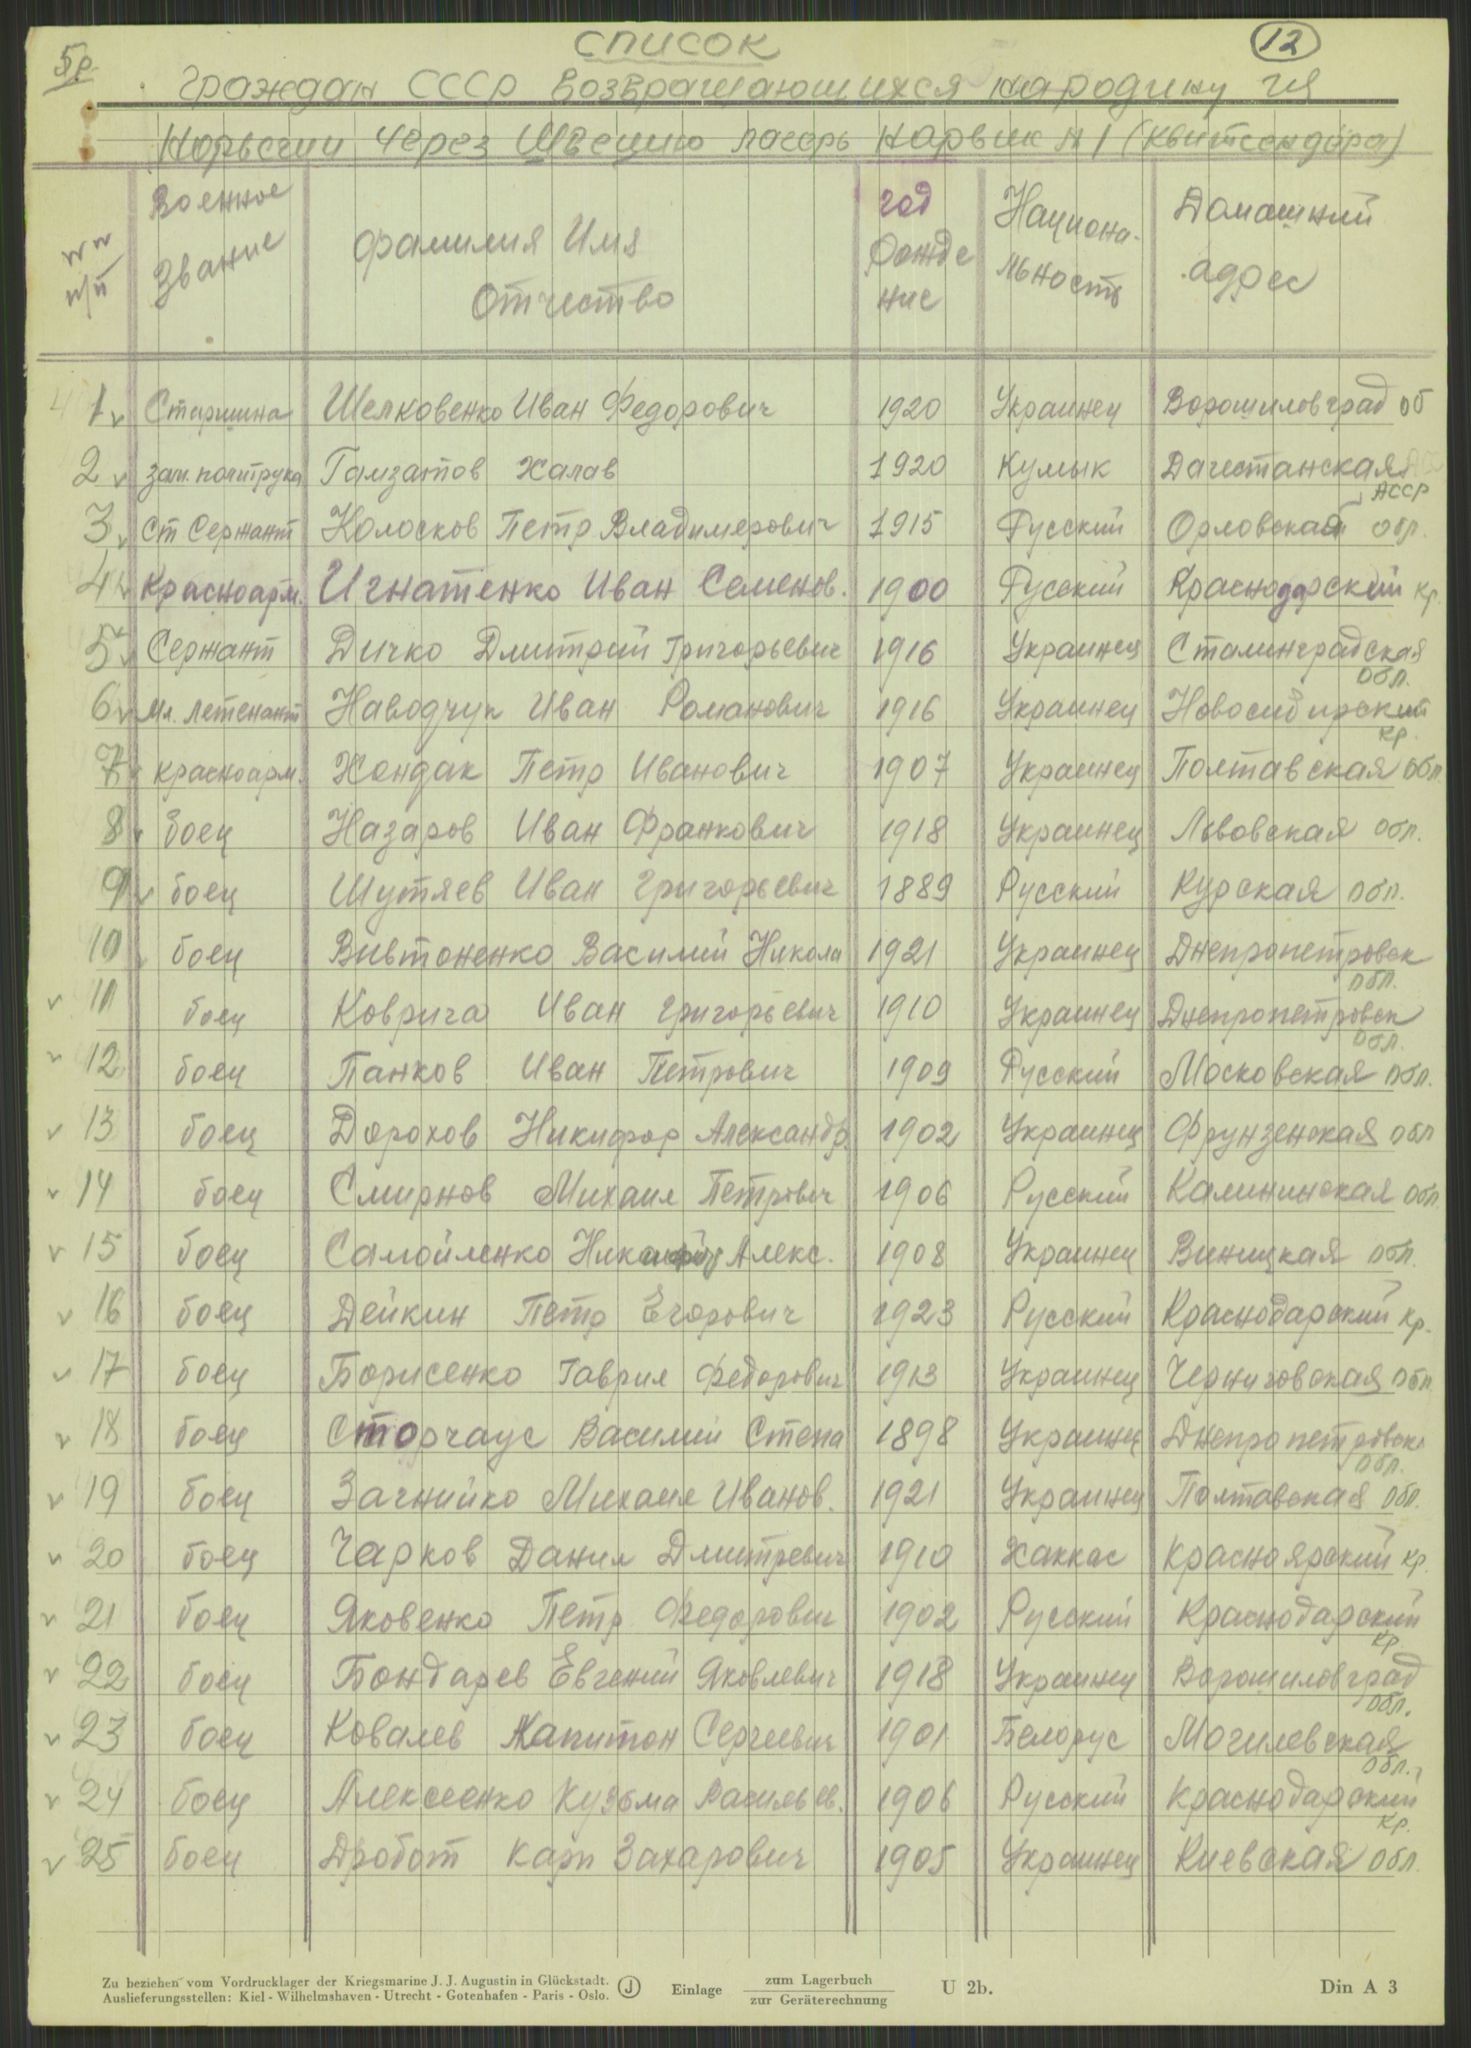 5р.
12
Список
граждан СССР возвращающихся народину
Норвегии через Швецию лагерь Нарвик N 1 (Квитсандора)
NN п/п Военное звание Фамилия Имя Отчество год рожде ние Национа- льность Домашний адрес
1 Старшина Шелковенко Иван Федорович 1920 Украинец Ворошиловград об
2 зам. политрука Гамзатов Халав 1920 Кумык Дагестанская АССР
3 Ст Сержант Колосков Петр Владимерович 1915 Русский Орловская обл.
4 Красноарм. Игнатенко Иван Семенов. 1900 Русский Краснодарский кр.
5 Сержант Дичко Дмитрий Григорьевич 1916 Украинец Сталинградская обл.
6 Мл. летенант Наводчук Иван Романович 1916 Украинец Новосибирский кр.
7 красноарм. Хондак Петр Иванович 1907 Украинец Полтавская обл.
8 боец Назаров Иван Франкович 1918 Украинец Львовская обл.
9 боец Шутяев Иван Григорьевич 1889 Русский Курская обл.
10 боец Вивтоненко Василий Никола 1921 Украинец Днепропетровск обл.
11 боец Коврига Иван Григорьевич 1910 Украинец Днепропетровск обл.
12 боец Панков Иван Петрович 1909 Русский Московская обл.
13 боец Дорохов Никифор Александр. 1902 Украинец Фрунзенская обл
14 боец Смирнов Михаил Петрович 1906 Русский Калининская обл
15 боец Самойленко Никифор Алекс. 1908 Украинец Виницкая обл.
16 боец Дейкин Петр Егорович 1923 Русский Краснодарский кр.
17 боец Борисенко Гаврил Федорович 1913 Украинец Черниговская обл
18 боец Сторчаус Василий Степа 1898 Украинец Днепропетровск обл.
19 боец Загнийко Михаил Иванов. 1921 Украинец Полтавская обл.
20 боец Чарков Данил Дмитревич 1910 Хаккас Красноярский кр.
21 боец Яковенко Петр Федорович 1902 Русский Краснодарский кр.
22 боец Бондарев Евгений Яковлевич 1918 Украинец Ворошиловград обл.
23 боец Ковалев Капитон Сергеевич 1901 Белорус Могилевская обл.
24 боец Алексеенко Кузьма Васильев. 1906 Русский Краснодарский кр.
25 боец Дробот Карп Захарович 1905 Украинец Киевская обл.
Zu beziehen vom Vordrucklager der Kriegsmarine J. J. Augustin in Glückstadt.
Auslieferungsstellen: Kiel - Wilhelmshaven - Utrecht - Gotenhafen - Paris - Oslo.
J Einlage zum Lagerbuch
zur Geräterechnung
U 2b. Din A 3